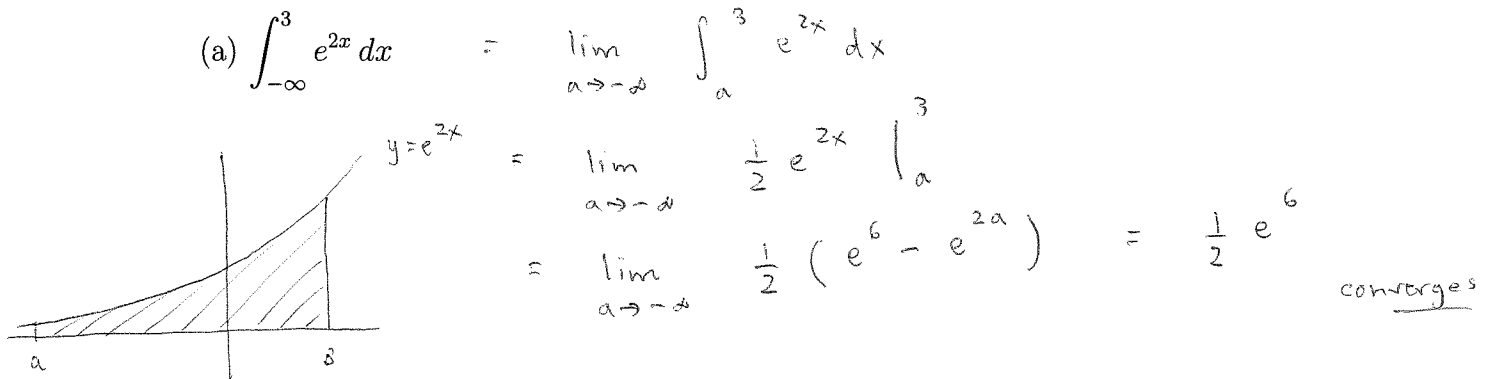 (a) ∫_{-∞}^{3} e^{2x} dx = lim_{a→-∞} ∫_{a}^{3} e^{2x} dx
y=e^{2x}
= lim_{a→-∞} 1/2 e^{2x} |_{a}^{3}
= lim_{a→-∞} 1/2 (e^{6} - e^{2a}) = 1/2 e^{6}
converges
a 3